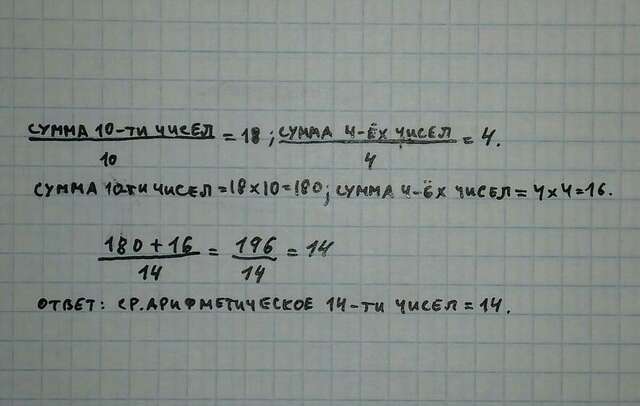 СУММА 10-ТИ ЧИСЕЛ / 10 = 18; СУММА 4-ЁХ ЧИСЕЛ / 4 = 4.
СУММА 10-ТИ ЧИСЕЛ = 18 × 10 = 180; СУММА 4-ЁХ ЧИСЕЛ = 4 × 4 = 16.
180 + 16 / 14 = 196 / 14 = 14
ОТВЕТ: СР. АРИФМЕТИЧЕСКОЕ 14-ТИ ЧИСЕЛ = 14.